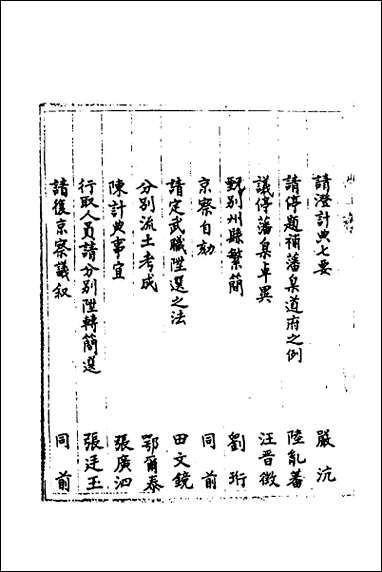 請澄計典七要　嚴沆
請停題補藩臬道府之例　陸亂蕃
議停藩臬卓異　汪晋徵
甄别州縣繁簡　劉珩
京察自劾　同前
請定武職陞選之法　田文鏡
分别流土考成　鄂爾泰
陳計典事宜　張廣泗
行取人員請分別陞轉簡選　張廷玉
請復京察議叙　同前